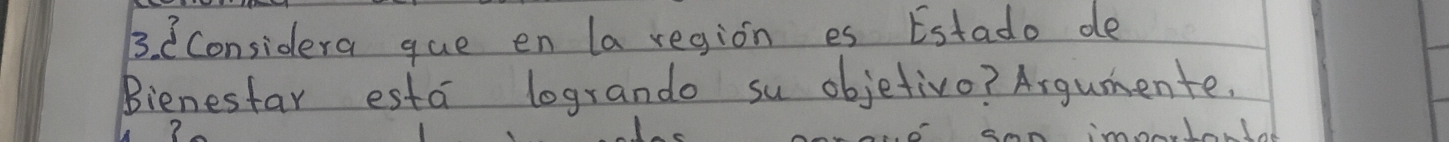 3. ¿Considera que en la región es Estado de
Bienestar está logrando su objetivo? Argumente.
son importantes